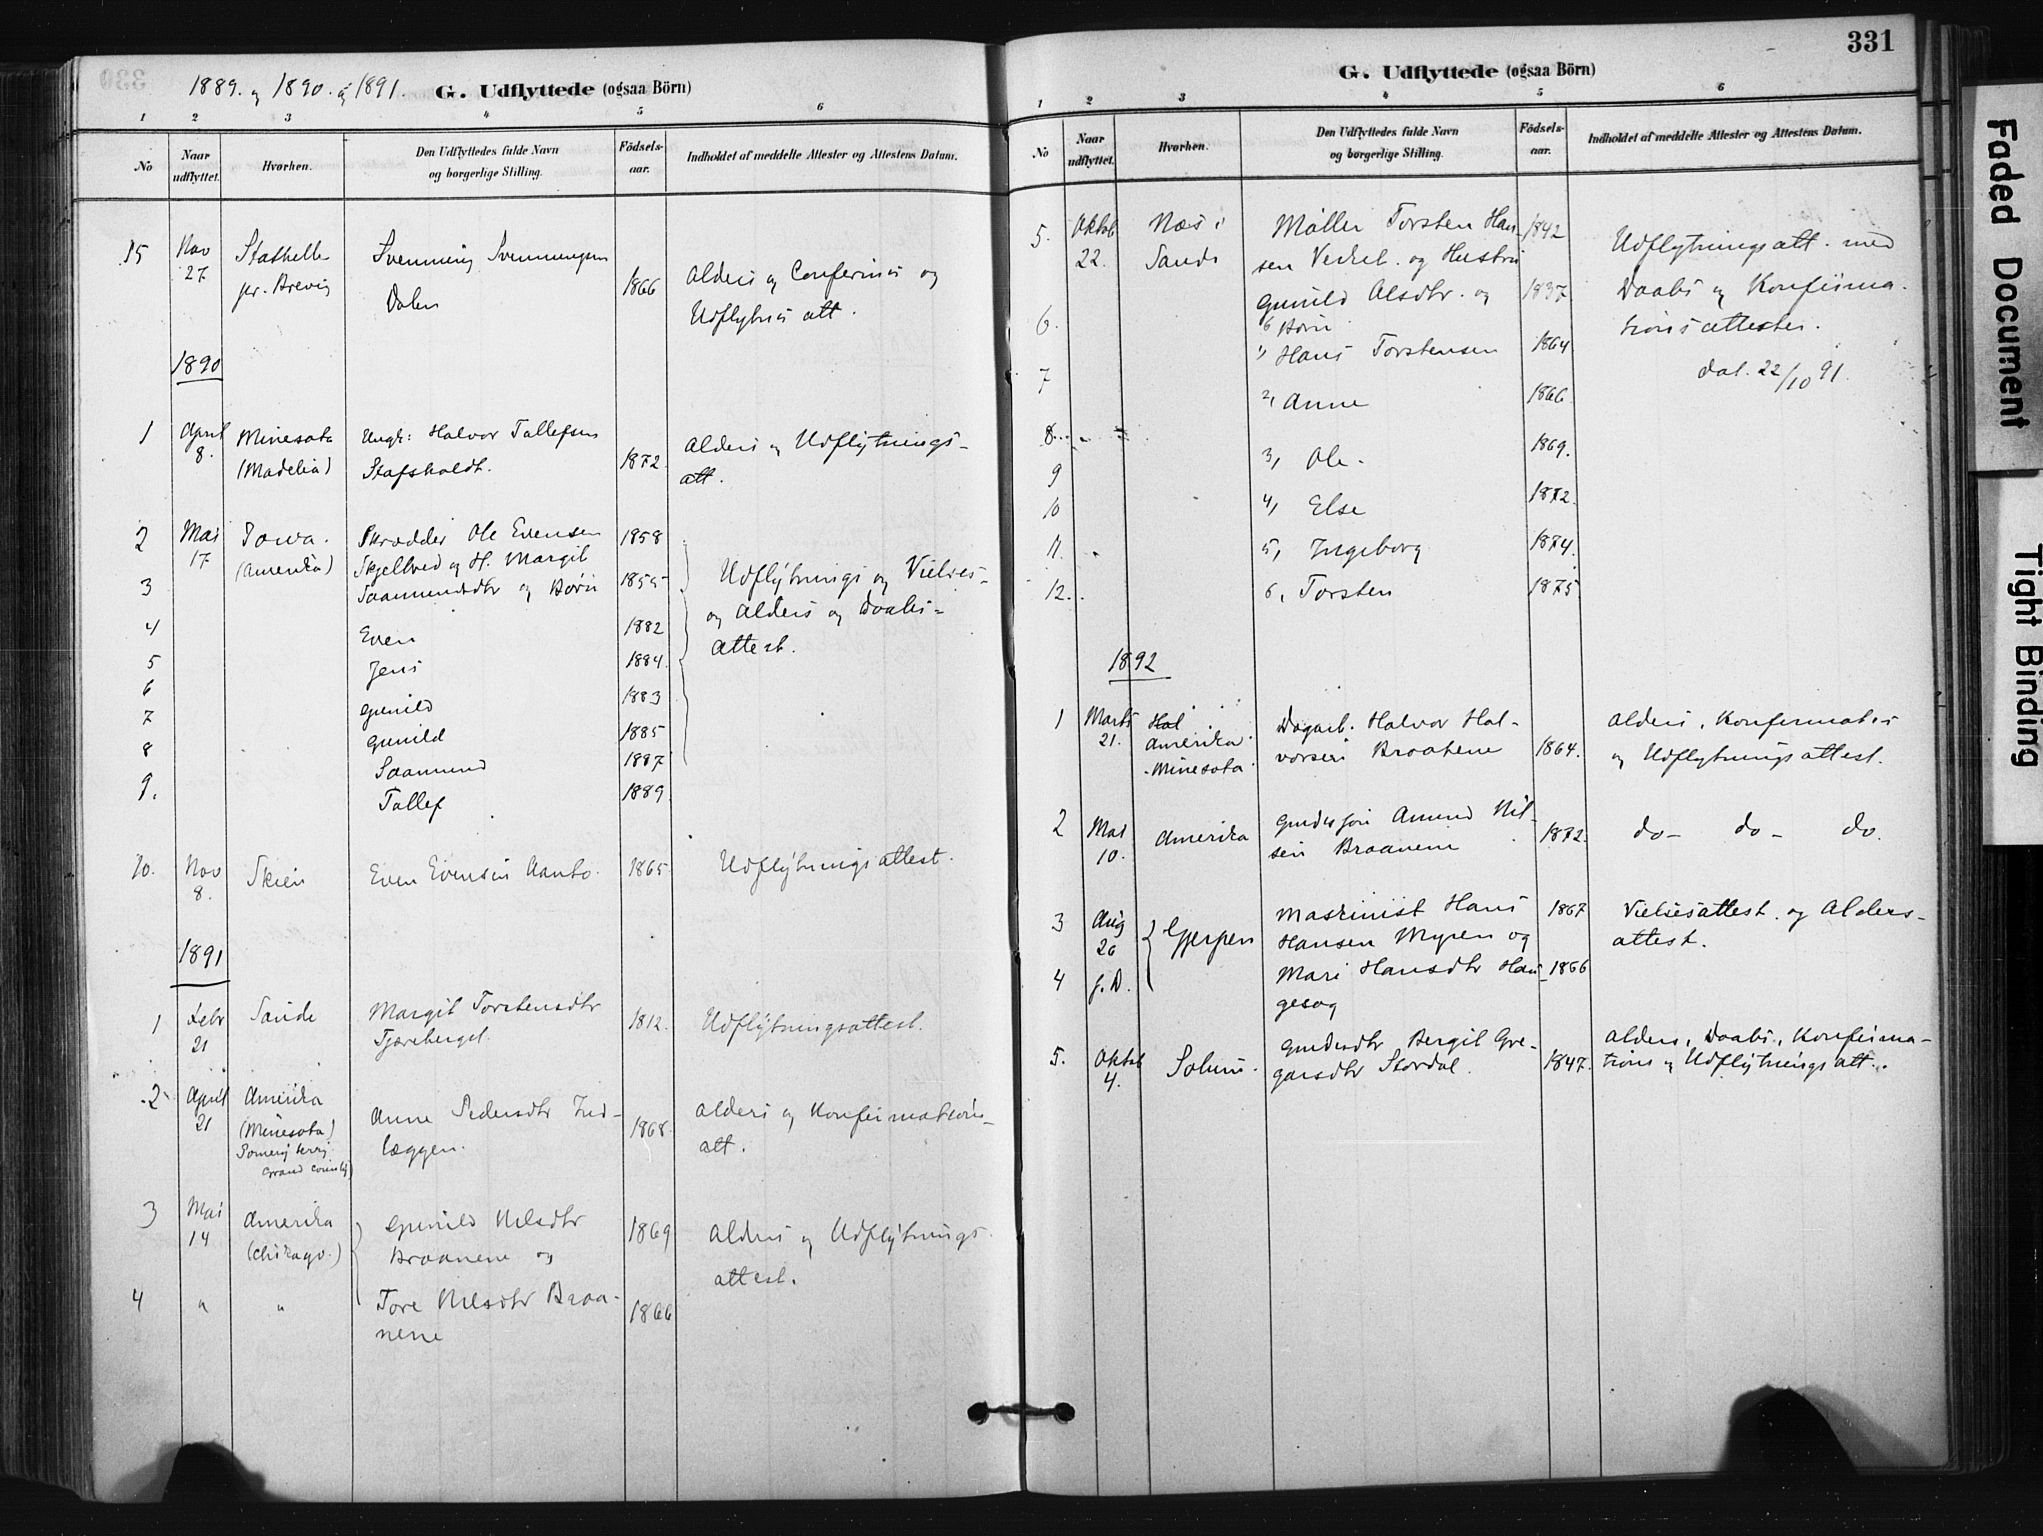 1889. og 1890. og 1891.
G. Udflyttede (ogsaa Börn)
1 2 3 4 5 6
No
Naar udflyttet.
Hvorhen.
Den Udflyttedes fulde Navn og borgerlige Stilling.
Födsels-aar.
Indholdet af meddelte Attester og Attestens Datum.
15 Nov 27 Stathelle pr. Brevig
Svenning Svenningsen
Dalen 1866
Alders og Conferms og
Udflytnis att.
1890
1 April 8. Minesota (Madelia)
Ungk: Halvor Tallefsen
Stafsholdt. 1872
Alders og Udflytnings-
att.
2 Mai 17 Iowa. (Amerika)
Skrædder Ole Evensen 1858
Skjelbred og H. Margit
3 Saamundsdtr og Børn 1855
Udflytnings og Vielses-
og Alders og Daabs-
attest.
4 Even 1882
5 Jens 1884.
6 Gunild 1883
7 Gunild 1885
8 Saamund 1887
9. Tallef 1889.
10. Nov 8. Skien
Even Evensen Aanto. 1865
Udflytningsattest.
1891
1 Febr 21 Sande
Margit Torstensdtr
Tjæreberget. 1812.
Udflytningsattest.
2 April 21 Amerika
(Minesota)
Grand County)
Anne Pedersdtr Ind-
læggen. 1868.
Alders og Konfirmations-
att.
3 Mai 14 Amerika
(Chikago.)
Gunild Nilsdtr 1869
Braanene og
Alders og Udflytnings
attest.
4 " "
Tore Nilsdtr Braa- 1866
nene
331
G. Udflyttede (ogsaa Börn)
1 2 3 4 5 6
No
Naar udflyttet.
Hvorhen.
Den Udflyttedes fulde Navn og borgerlige Stilling.
Födsels-aar.
Indholdet af meddelte Attester og Attestens Datum.
5. Oktob 22. Næs i Sande
Møller Torsten Han- 1842
sen Verket. og Hustru
Udflytningsatt. med
6. Gunild Olsdtr. og 1837
6 Børn
Daabs og Konfirma-
tionsattester.
dat. 22/10 91.
7 1, Hans Torstensen 1864
8 2, Anne 1866
9 3, Ole. 1869.
10 4, Else 1872.
11. 5, Ingeborg 1874.
12. 6, Torsten 1875
1892
1 Marts 21. Hal
Amerika
Minesota
Dagarb. Halvor Hal-
vorsen Braatene 1864.
Alders, Konfirmatis
og Udflytningsattest.
2 Mai 10. Amerika
Gaardssøn Amund Nil-
sen Braanene 1872.
do- do- do.
3 Aug 26 Gjerpen
Maskinist Hans 1867
Hansen Myren og
Vielsesattest og Alders-
attest.
4 s. D.
Mari Hansdtr Hau- 1866
gesag
5. Oktob 4. Solum.
Gaardsdtr Bergit Gre-
garsdtr Stordal. 1847.
Alders, Daabs, Konfirma-
tions og Udflytnings att.
Faded Document
Tight Binding